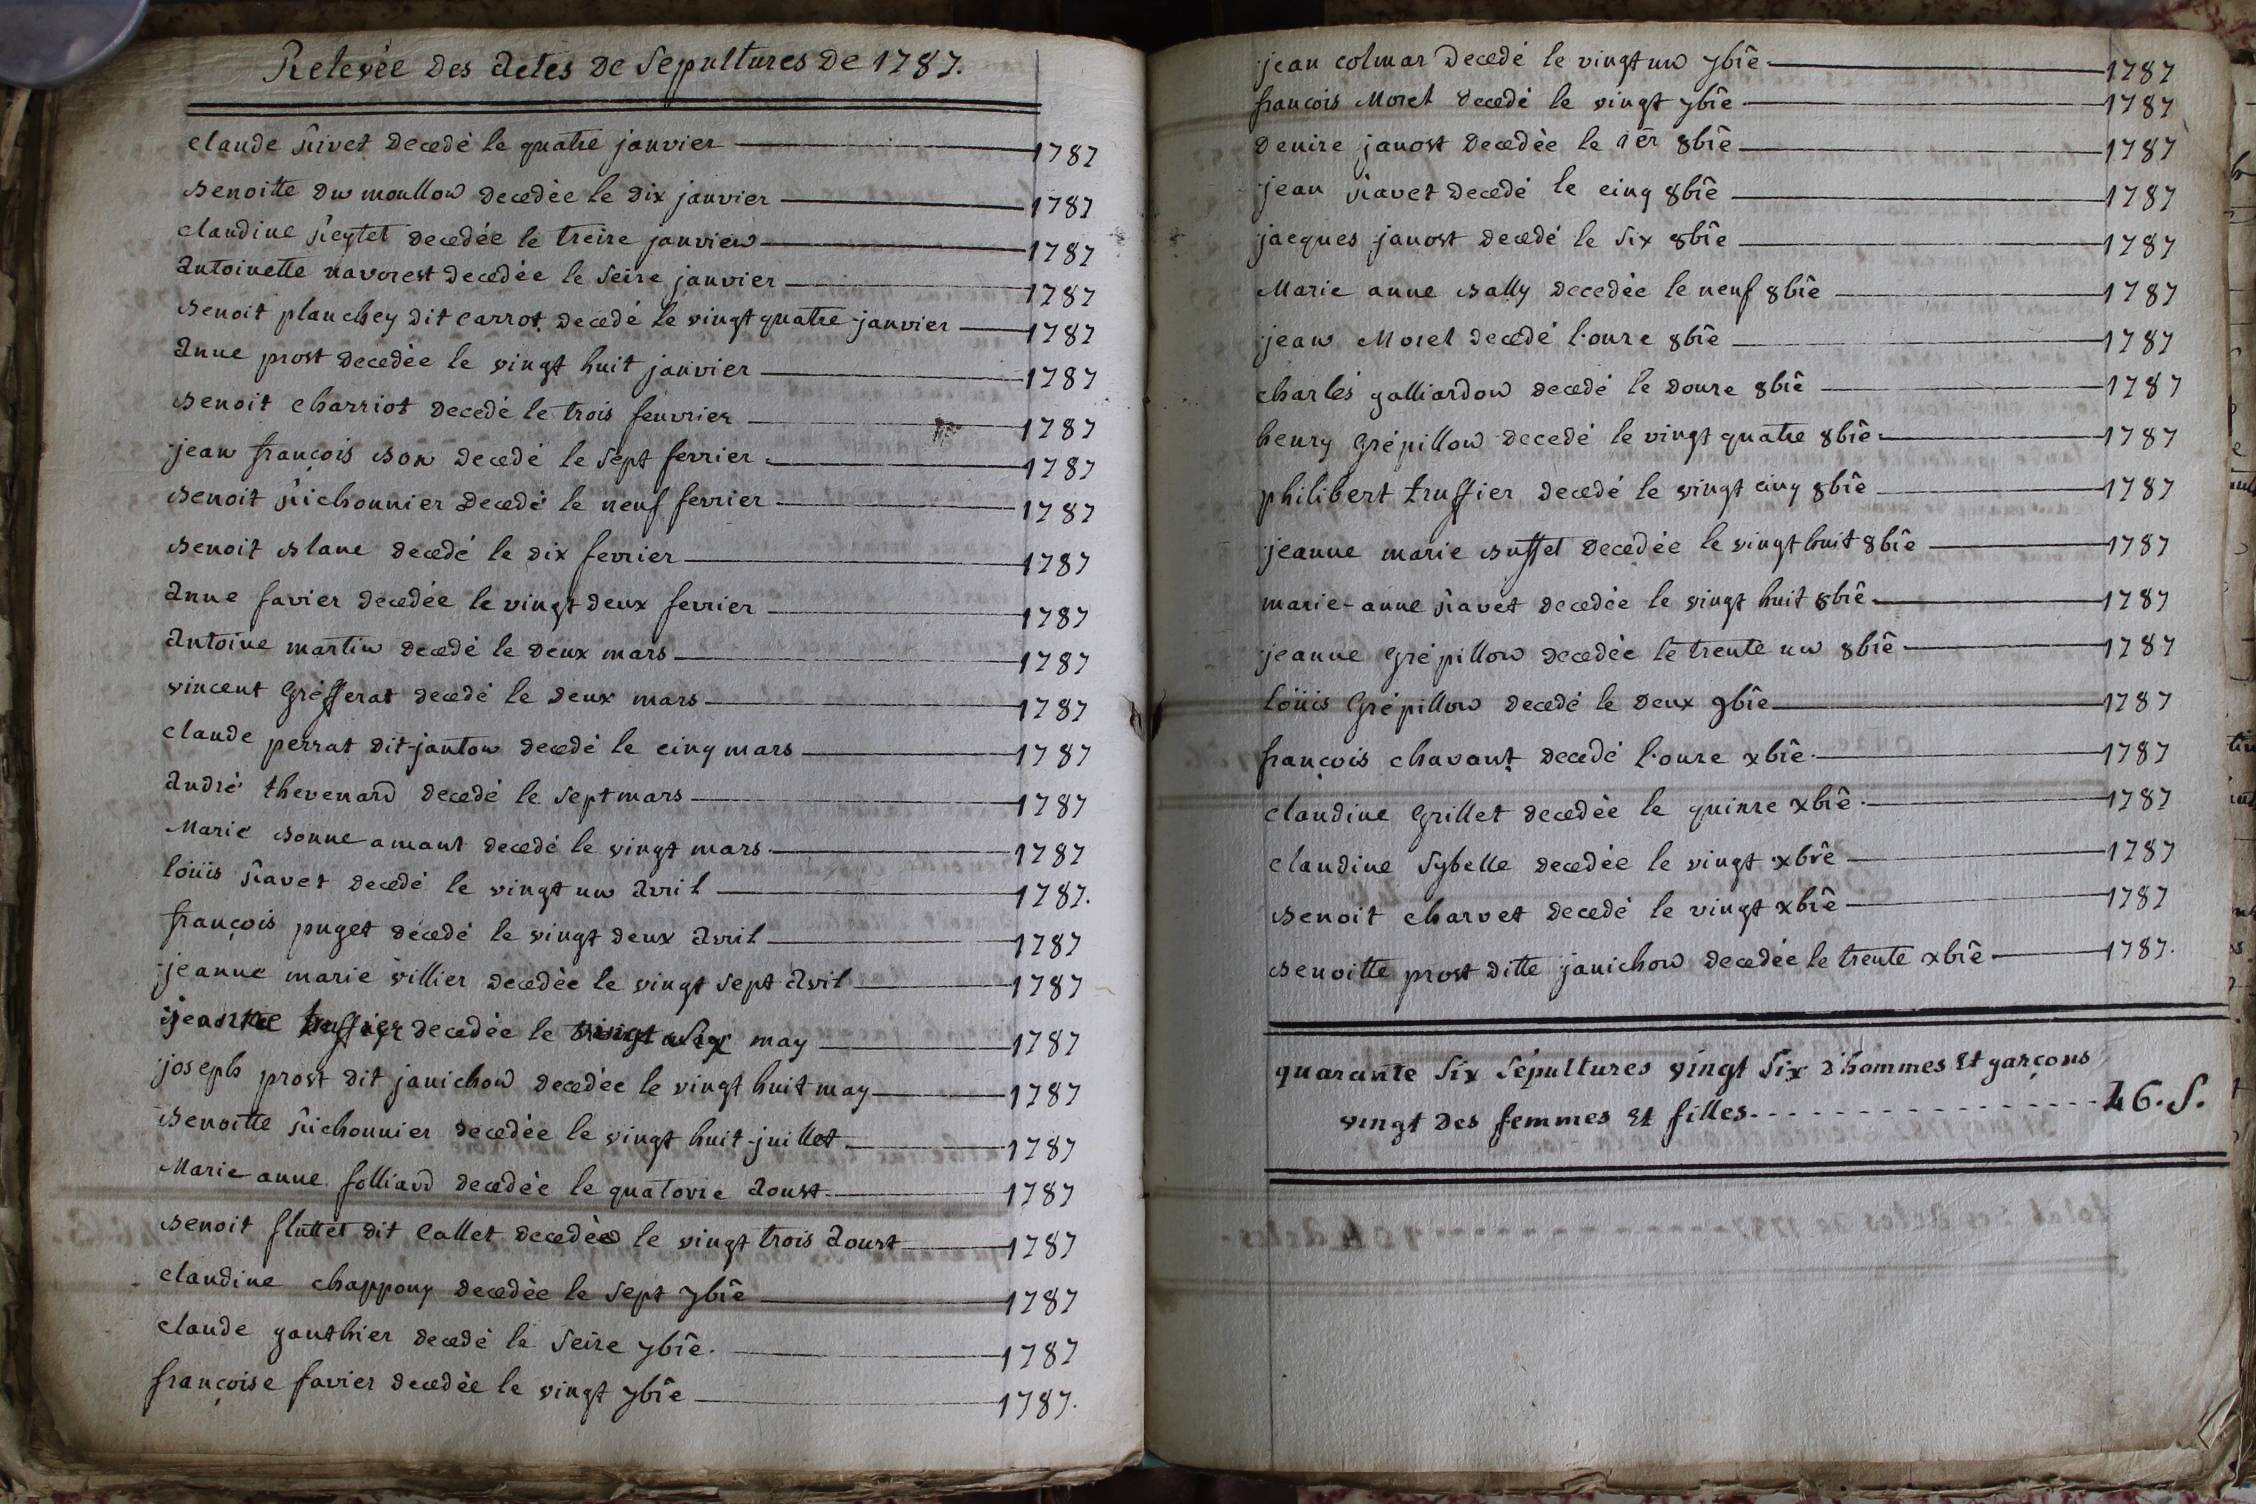 Relevée des actes de Sepultures de 1787.
claude Rivet decedé le quatre janvier 1787
Benoitte du moullon decedèe le dix janvier 1787
claudine Reytet decedée le treize janvier 1787
antoinette navorest decedèe le seize janvier 1787
Benoit planchey dit carrot decedé le vingt quatre janvier 1787
anne prost decedèe le vingt huit janvier 1787
Benoit charriot decedé le trois feuvrier 1787
jean françois Bon decedé le sept fevrier 1787
Benoit Richonnier decedé le neuf fevrier 1787
Benoit Blanc decedé le dix fevrier 1787
anne favier decedée le vingt deux fevrier 1787
antoine martin decedé le deux mars 1787
vincent Grèfferat decedé le deux mars 1787
claude perrat dit-janton decedé le cinq mars 1787
andrè thevenard decedé le sept mars 1787
Marie Bonne amant decedé le vingt mars 1787
loüis Ravet decedé le vingt un avril 1787.
françois puget decedé le vingt deux avril 1787
jeanne marie villier decedèe le vingt sept avril 1787
jeanne truffier decedée le may 1787
joseph prost dit janichon decedèe le vingt huit may 1787
Benoitte Richonnier decedèe le vingt huit juillet 1787
Marie anne folliard decedèe le quatorze aoust 1787
Benoit fluttet dit Callet decedè le vingt trois aoust 1787
claudine chappouy decedèe le sept 7bre 1787
claude gauthier decedé le seize 7bre. 1787
françoise favier decedèe le vingt 7bre 1787.
jean colmar decedé le vingt un 7bre 1787
françois Morel decedé le vingt 7bre 1787
denize janost decedèe le 1er 8bre 1787
jean Ravet decedé le cinq 8bre 1787
jacques janost decedé le six 8bre 1787
Marie anne Bally decedèe le neuf 8bre 1787
jean Morel decedé l'onze 8bre 1787
charles galliardon decedé le douze 8bre 1787
henry Grépillon decedé le vingt quatre 8bre 1787
philibert truffier decedé le vingt cinq 8bre 1787
jeanne marie Buffet decedée le vingt huit 8bre 1787
marie-anne Ravet decedèe le vingt huit 8bre 1787
jeanne Grépillon decedèe le trente un 8bre 1787
loüis Grépillon decedé le deux 9bre 1787
françois chavant decedé l'onze xbre 1787
claudine Grillet decedèe le quinze xbre 1787
claudine Sybelle decedèe le vingt xbre 1787
Benoit charvet decedé le vingt xbre 1787
Benoitte prost ditte janichon decedèe le trente xbre 1787.
quarante six sépultures vingt six d'hommes et garçons
vingt des femmes et filles. 46. S.